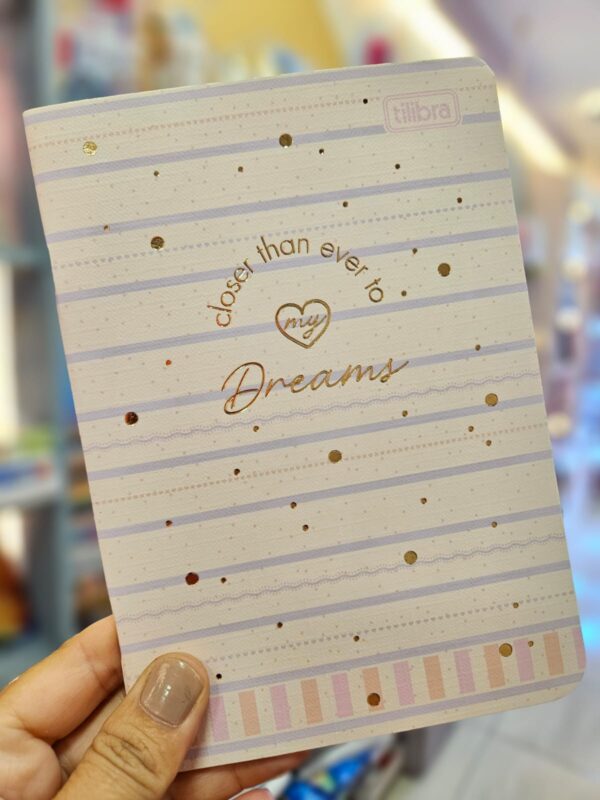 tilibra
closer than ever to
my
Dreams